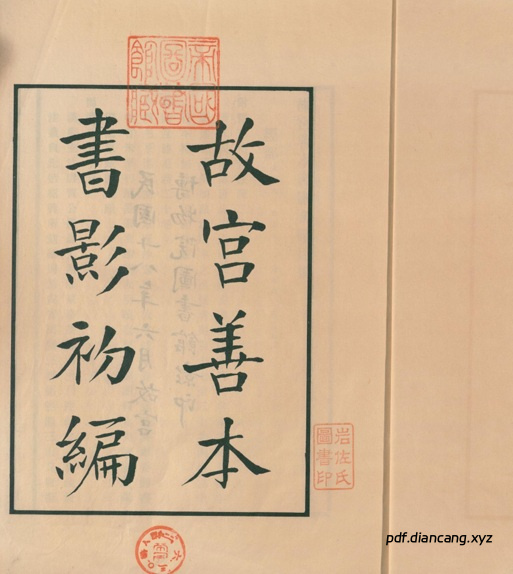 故宮善本
書影初編
岩佐氏
圖書印
pdf.diancang.xyz